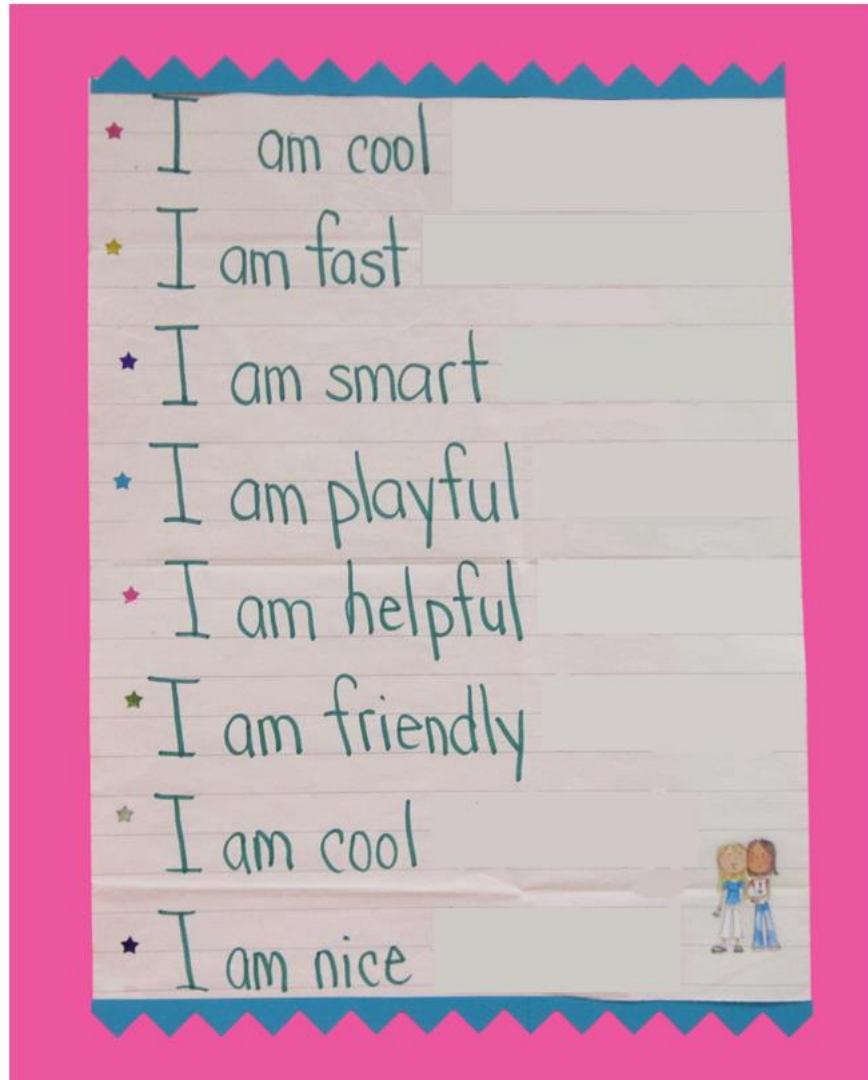 I am cool
I am fast
I am smart
I am playful
I am helpful
I am friendly
I am cool
I am nice